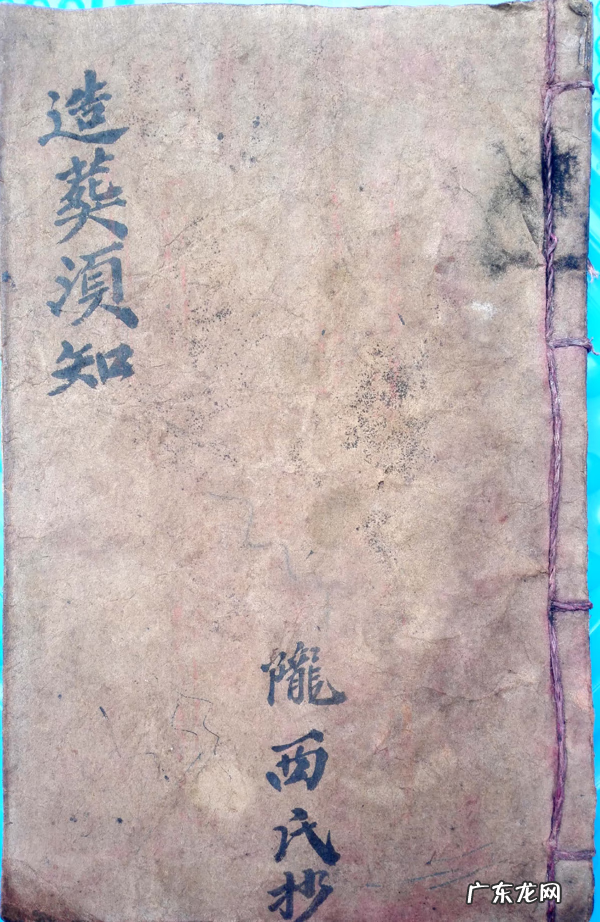 造葬須知
隴西氏抄
广东龙网